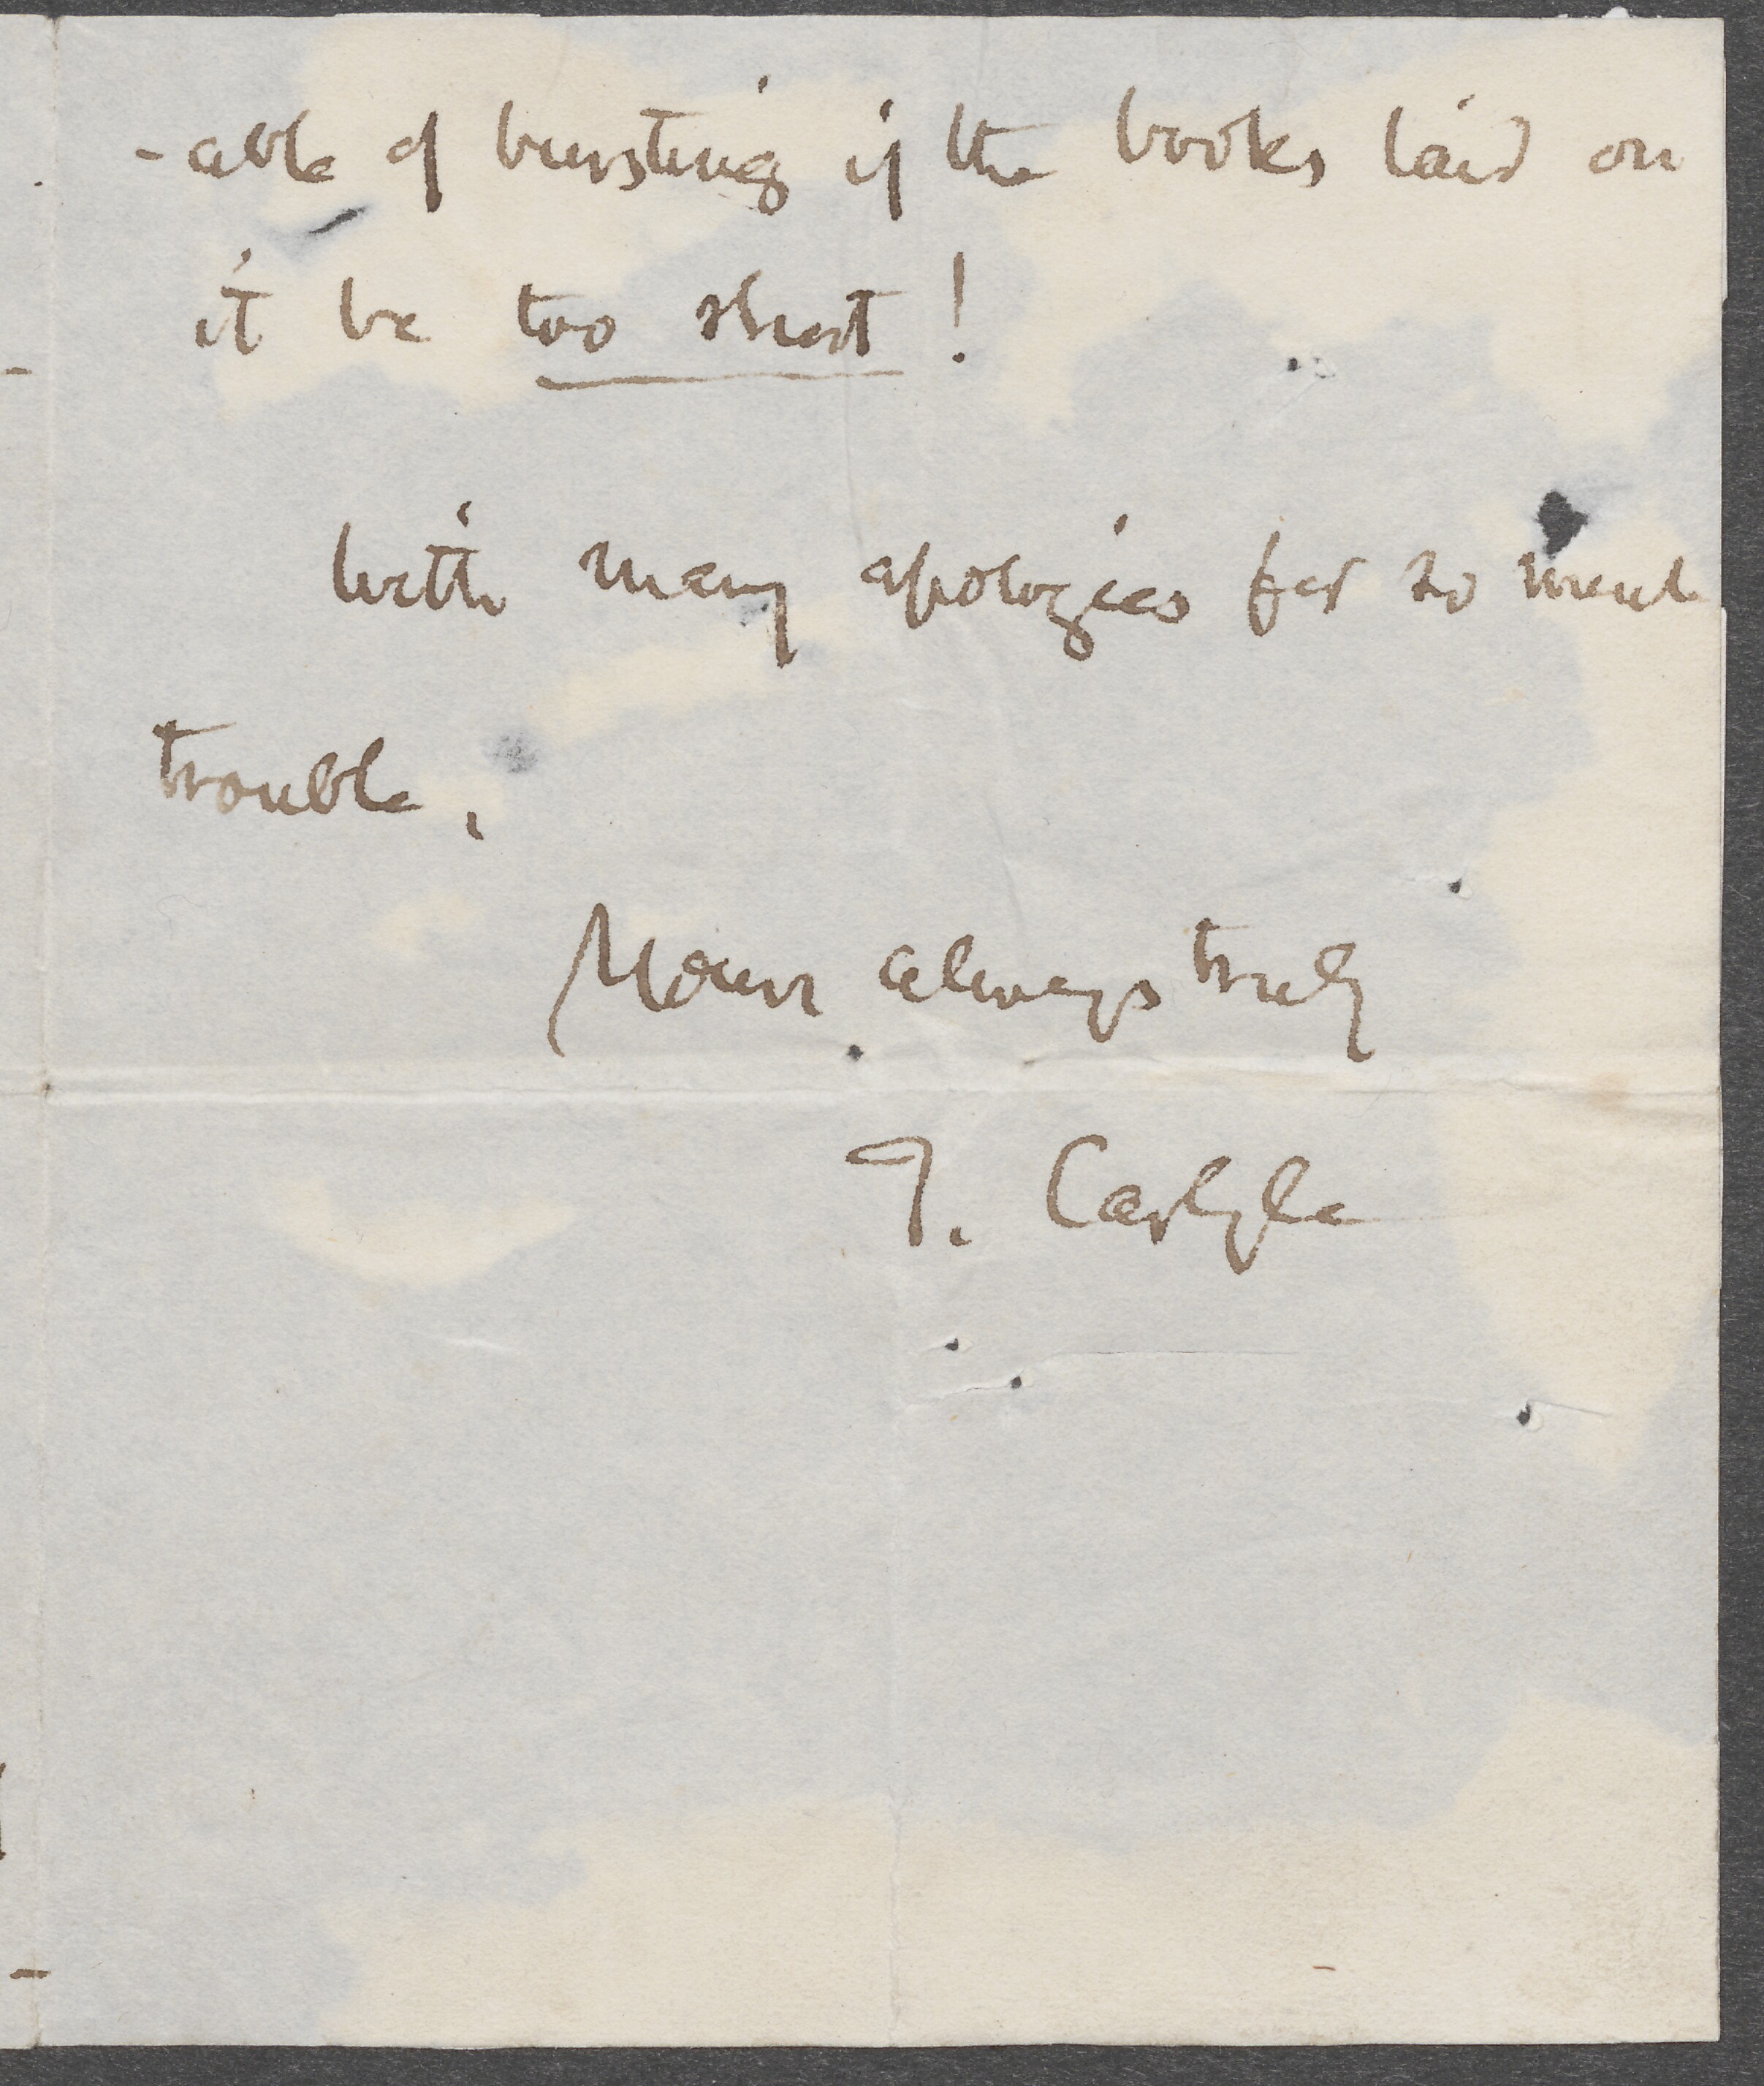 -able of bursting if the books laid on
it be too short!
With many apologies for so much
trouble,
Yours always truly
T. Carlyle